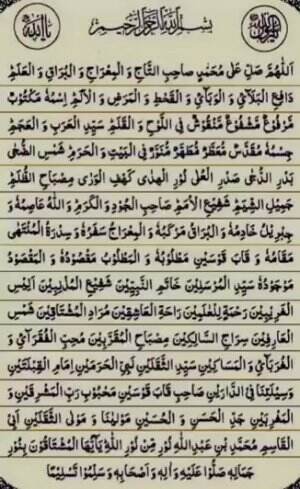 يا الله
بسم الله الرحمن الرحيم
يا رسول الله
اَللّٰهُمَّ صَلِّ عَلٰى مُحَمَّدٍ صَاحِبِ التَّاجِ وَ الْمِعْرَاجِ وَ الْبُرَاقِ وَ الْعَلَمِ
دَافِعِ الْبَلَآءِ وَ الْوَبَآءِ وَ الْقَحْطِ وَ الْمَرَضِ وَ الْاَلَمِ اِسْمُهٗ مَكْتُوْبٌ
مَرْفُوْعٌ مَّشْفُوْعٌ مَّنْقُوْشٌ فِى اللَّوْحِ وَ الْقَلَمِ سَيِّدِ الْعَرَبِ وَ الْعَجَمِ
جِسْمُهٗ مُقَدَّسٌ مُّعَطَّرٌ مُّطَهَّرٌ مُّنَوَّرٌ فِى الْبَيْتِ وَ الْحَرَمِ شَمْسِ الضُّحٰى
بَدْرِ الدُّجٰى صَدْرِ الْعُلٰى نُوْرِ الْهُدٰى كَهْفِ الْوَرٰى مِصْبَاحِ الظُّلَمِ
جَمِيْلِ الشِّيَمِ شَفِيْعِ الْاُمَمِ صَاحِبِ الْجُوْدِ وَ الْكَرَمِ وَ اللّٰهُ عَاصِمُهٗ وَ
جِبْرِيْلُ خَادِمُهٗ وَ الْبُرَاقُ مَرْكَبُهٗ وَ الْمِعْرَاجُ سَفَرُهٗ وَ سِدْرَةُ الْمُنْتَهٰى
مَقَامُهٗ وَ قَابَ قَوْسَيْنِ مَطْلُوْبُهٗ وَ الْمَطْلُوْبُ مَقْصُوْدُهٗ وَ الْمَقْصُوْدُ
مَوْجُوْدُهٗ سَيِّدِ الْمُرْسَلِيْنَ خَاتَمِ النَّبِيّٖنَ شَفِيْعِ الْمُذْنِبِيْنَ اَنِيْسِ
الْغَرِيْبِيْنَ رَحْمَةٍ لِّلْعٰلَمِيْنَ رَاحَةِ الْعَاشِقِيْنَ مُرَادِ الْمُشْتَاقِيْنَ شَمْسِ
الْعَارِفِيْنَ سِرَاجِ السَّالِكِيْنَ مِصْبَاحِ الْمُقَرَّبِيْنَ مُحِبِّ الْفُقَرَآءِ وَ
الْغُرَبَآءِ وَ الْمَسَاكِيْنِ سَيِّدِ الثَّقَلَيْنِ نَبِىِّ الْحَرَمَيْنِ اِمَامِ الْقِبْلَتَيْنِ
وَسِيْلَتِنَا فِى الدَّارَيْنِ صَاحِبِ قَابَ قَوْسَيْنِ مَحْبُوْبِ رَبِّ الْمَشْرِقَيْنِ وَ
الْمَغْرِبَيْنِ جَدِّ الْحَسَنِ وَ الْحُسَيْنِ مَوْلٰنَا وَ مَوْلَى الثَّقَلَيْنِ اَبِى
الْقَاسِمِ مُحَمَّدِ بْنِ عَبْدِ اللّٰهِ نُوْرٍ مِّنْ نُوْرِ اللّٰهِ يٰٓاَيُّهَا الْمُشْتَاقُوْنَ بِنُوْرِ
جَمَالِهٖ صَلُّوْا عَلَيْهِ وَ اٰلِهٖ وَ اَصْحَابِهٖ وَ سَلِّمُوْا تَسْلِيْمًا